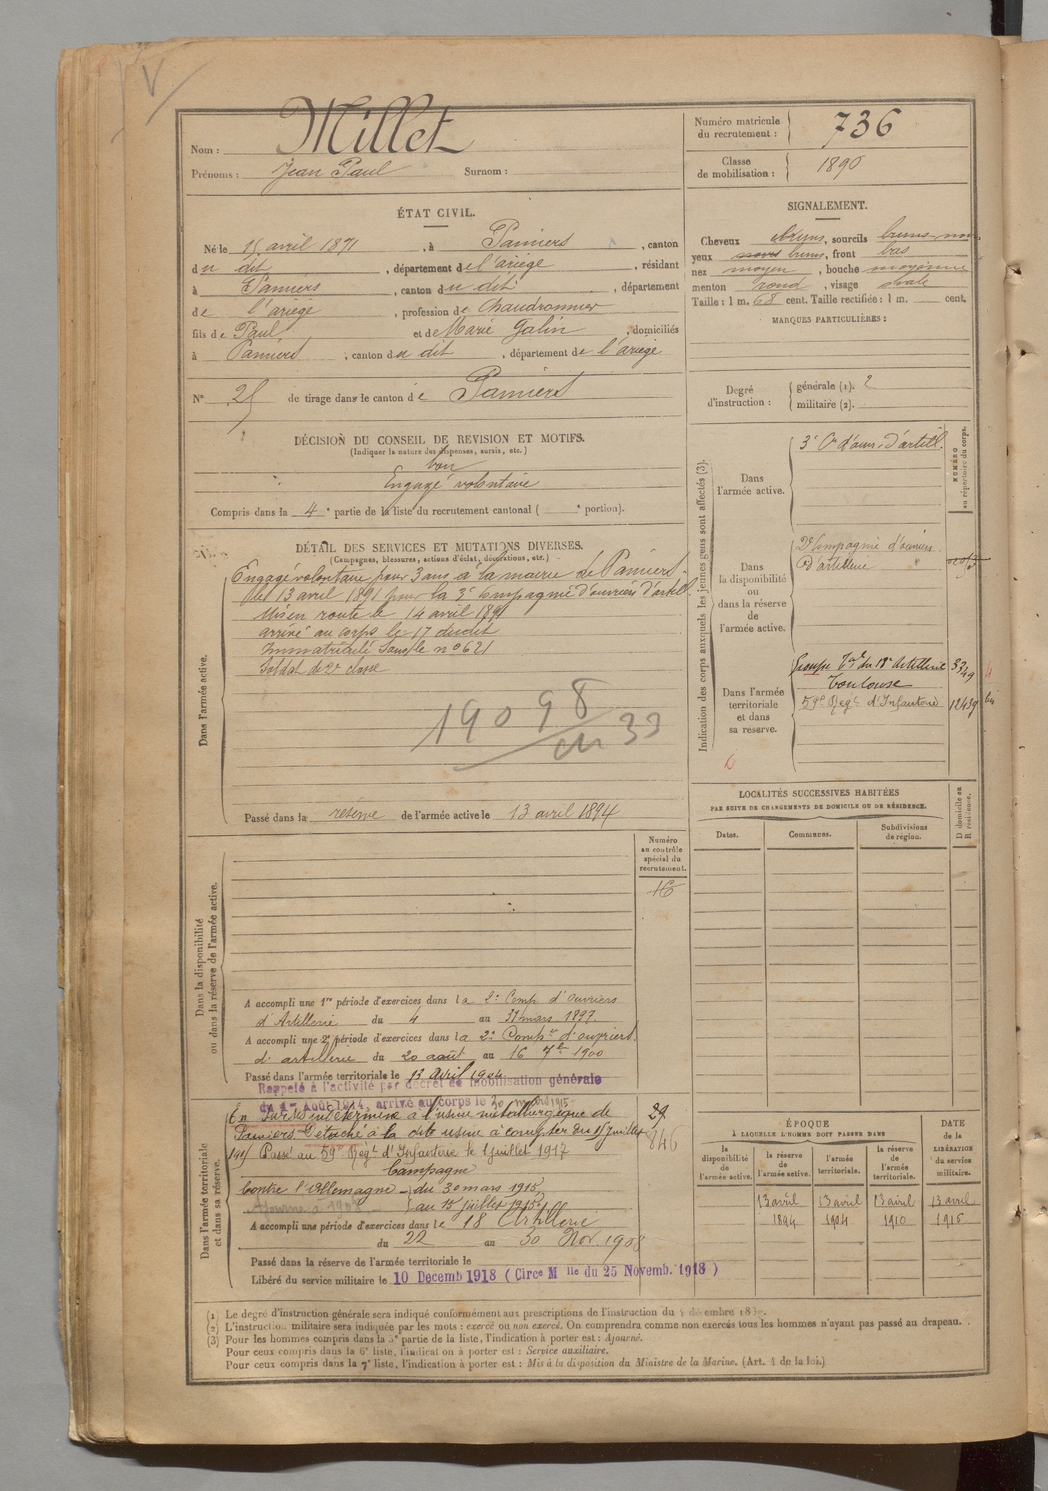 V
Nom : Millet
Prénoms : Jean Paul Surnom :
Numéro matricule du recrutement : 736
Classe de mobilisation : 1890
ÉTAT CIVIL.
Né le 15 avril 1871, à Pamiers, canton
du dit, département de l'ariège, résidant
à Pamiers, canton du dit, département
de l'ariège, profession de Chaudronnier
fils de Paul et de Marie Galin, domiciliés
à Pamiers, canton du dit, département de l'ariège
N° 25 de tirage dans le canton de Pamiers
SIGNALEMENT.
Cheveux bruns, sourcils bruns
yeux bruns, front bas
nez moyen, bouche moyenne
menton rond, visage ovale
Taille : 1 m. 68 cent. Taille rectifiée : 1 m. cent.
MARQUES PARTICULIÈRES :
Degré d'instruction : générale (1). 2
militaire (2).
DÉCISION DU CONSEIL DE REVISION ET MOTIFS.
(Indiquer la nature des dispenses, sursis, etc.)
bon
Engagé volontaire
Compris dans la 4e partie de la liste du recrutement cantonal ( e portion).
DÉTAIL DES SERVICES ET MUTATIONS DIVERSES.
(Campagnes, blessures, actions d'éclat, décorations, etc.)
Dans l'armée active.
Engagé volontaire pour 3 ans à la mairie de Pamiers
le 13 avril 1891 pour la 3e Compagnie d'ouvriers d'artil.
Mis en route le 14 avril 1891
arrivé au corps le 17 dudit
Immatriculé sous le n° 621
Soldat de 2e classe
19098
33
Passé dans la réserve de l'armée active le 13 avril 1894
Indication des corps auxquels les jeunes gens sont affectés (3).
NUMÉRO au répertoire du corps.
Dans l'armée active.
3e Cie d'ouv. d'artill.
Dans la disponibilité ou dans la réserve de l'armée active.
2e Compagnie d'ouvriers
d'artillerie
Dans l'armée territoriale et dans sa réserve.
Groupe Tal du 18e Artillerie 3349
Toulouse
59e Régt d'Infanterie 12439
LOCALITÉS SUCCESSIVES HABITÉES
PAR SUITE DE CHANGEMENTS DE DOMICILE OU DE RÉSIDENCE.
Dates. Communes. Subdivisions de région. D domicile ou R résidence.
Dans la disponibilité ou dans la réserve de l'armée active.
Numéro au contrôle spécial du recrutement.
A accompli une 1re période d'exercices dans la 2e Comp. d'ouvriers
d'Artillerie du 4 au 31 mars 1897
A accompli une 2e période d'exercices dans la 2e Compie d'ouvriers
d'artillerie du 20 août au 16 7bre 1900
Passé dans l'armée territoriale le 13 Avril 1904
Rappelé à l'activité par décret de mobilisation générale
du 1er Août 1914, arrivé au corps le 30 mars 1915
Dans l'armée territoriale et dans sa réserve.
En Sursis indéterminé à l'usine métallurgique de
Pamiers. Détaché à la dite usine à compter du 15 juillet
1915 Passé au 59e Régt d'Infanterie le 1 juillet 1917
29
846
Campagne
Contre l'Allemagne du 30 mars 1915
au 15 juillet 1915
Ajourné à 1908
A accompli une période d'exercices dans le 18 Artillerie
du 22 au 30 Nov. 1908
Passé dans la réserve de l'armée territoriale le
Libéré du service militaire le 10 Decemb 1918 (Circe Mlle du 25 Novemb. 1918)
ÉPOQUE À LAQUELLE L'HOMME DOIT PASSER DANS
la disponibilité de l'armée active. la réserve de l'armée active. l'armée territoriale. la réserve de l'armée territoriale. DATE de la LIBÉRATION du service militaire.
13 avril 13 avril 13 avril 13 avril
1894 1904 1910 1916
(1) Le degré d'instruction générale sera indiqué conformément aux prescriptions de l'instruction du décembre
(2) L'instruction militaire sera indiquée par les mots : exercé ou non exercé. On comprendra comme non exercés tous les hommes n'ayant pas passé au drapeau.
(3) Pour les hommes compris dans la 5e partie de la liste, l'indication à porter est : Ajourné.
Pour ceux compris dans la 6e liste, l'indication à porter est : Service auxiliaire.
Pour ceux compris dans la 7e liste, l'indication à porter est : Mis à la disposition du Ministre de la Marine. (Art. 4 de la loi.)